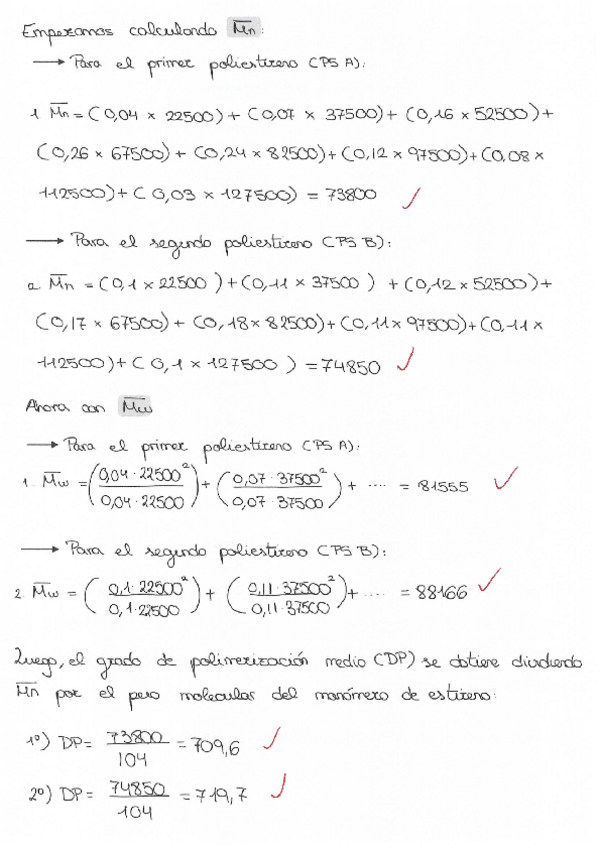 Empezamos calculando M̅n:
→ Para el primer poliestireno (PS A):
1. M̅n = (0,04 × 22500) + (0,07 × 37500) + (0,16 × 52500) +
(0,26 × 67500) + (0,24 × 82500) + (0,12 × 97500) + (0,08 ×
112500) + (0,03 × 127500) = 73800 ✓
→ Para el segundo poliestireno (PS B):
2. M̅n = (0,1 × 22500) + (0,11 × 37500) + (0,12 × 52500) +
(0,17 × 67500) + (0,18 × 82500) + (0,11 × 97500) + (0,11 ×
112500) + (0,1 × 127500) = 74850 ✓
Ahora con M̅w
→ Para el primer poliestireno (PS A):
1. M̅w = (0,04 · 22500² / 0,04 · 22500) + (0,07 · 37500² / 0,07 · 37500) + .... = 81555 ✓
→ Para el segundo poliestireno (PS B):
2. M̅w = (0,1 · 22500² / 0,1 · 22500) + (0,11 · 37500² / 0,11 · 37500) + .... = 88166 ✓
Luego, el grado de polimerización medio (DP) se obtiene dividiendo
M̅n por el peso molecular del monómero de estireno:
1º) DP = 73800 / 104 = 709,6 ✓
2º) DP = 74850 / 104 = 719,7 ✓